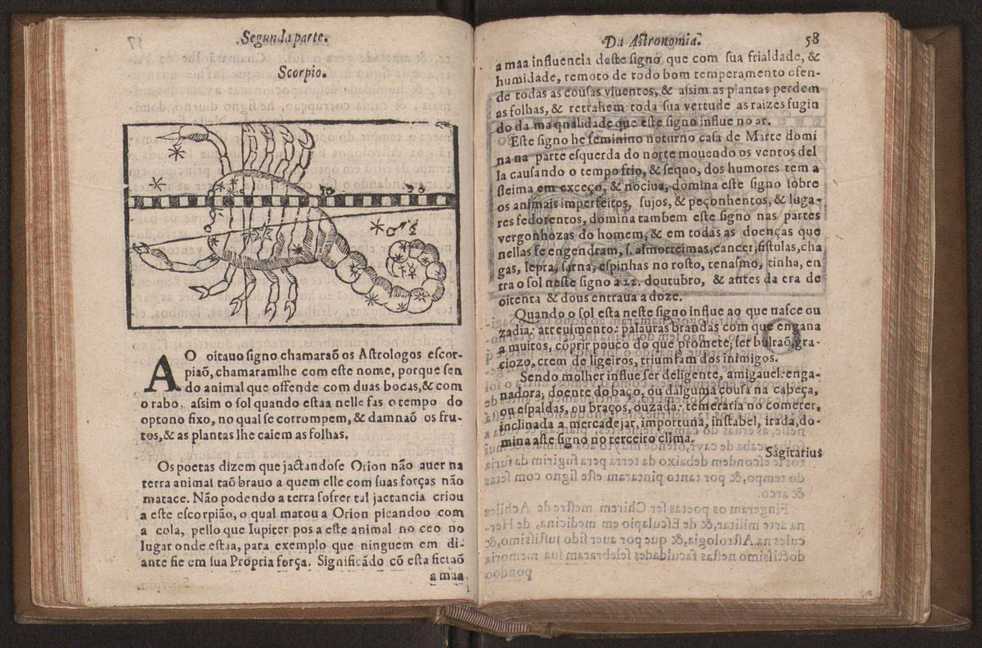 Segunda parte.
Scorpio.
AO oitauo signo chamaraõ os Astrologos escor-
piaõ, chamaramlhe com este nome, porque sen
do animal que offende com duas bocas, & com
o rabo, assim o sol quando estaa nelle fas o tempo do
optono fixo, no qual se corrompem, & damnaõ os fru-
tos, & as plantas lhe caiem as folhas,
Os poetas dizem que jactandose Orion não auer na
terra animal taõ brauo a quem elle com suas forças não
matace. Não podendo a terra sofrer tal jactancia criou
a este escorpião, o qual matou a Orion picandoo com
a cola, pello que Iupiter pos a este animal no ceo no
lugar onde estaa, para exemplo que ninguem em di-
ante fie em sua Propria força. Significãdo cõ esta ficiaõ
a maa
Da Astronomia. 58
a maa influencia deste signo que com sua frialdade, &
humidade, remoto de todo bom temperamento ofen-
de todas as cousas viuentes, & assim as plantas perdem
as folhas, & retrahem toda sua vertude as raizes fugin
do da ma qualidade que este signo influe no ar.
Este signo he feminino noturno casa de Marte domi
na na parte esquerda do norte mouendo os ventos del
la causando o tempo frio, & sequo, dos humores tem a
fleima em exceço, & nociua, domina este signo sobre
os animais imperfeitos, sujos, & peçonhentos, & luga-
res fedorentos, domina tambem este signo nas partes
vergonhozas do homem, & em todas as doenças que
nellas se engendram, s. almorreimas, cancer, fistulas, cha
gas, lepra, sarna, espinhas no rosto, tenasmo, tinha, en
tra o sol neste signo a 22. doutubro, & antes da era de
oitenta & dous entraua a doze.
Quando o sol esta neste signo influe ao que nasce ou
zadia: atreuimento: palauras brandas com que engana
a muitos, cõprir pouco do que promete, ser bulraõ, gra-
ciozo, crem de ligeiros, triumfam dos inimigos.
Sendo molher influe ser deligente, amigauel: enga-
nadora, doente do baço, ou dalguma cousa na cabeça,
ou espaldas, ou braços, ouzada: temeraria no cometer,
inclinada a mercadejar, importuna, instabel, irada, do-
mina aste signo no terceiro clima.
Sagitarius